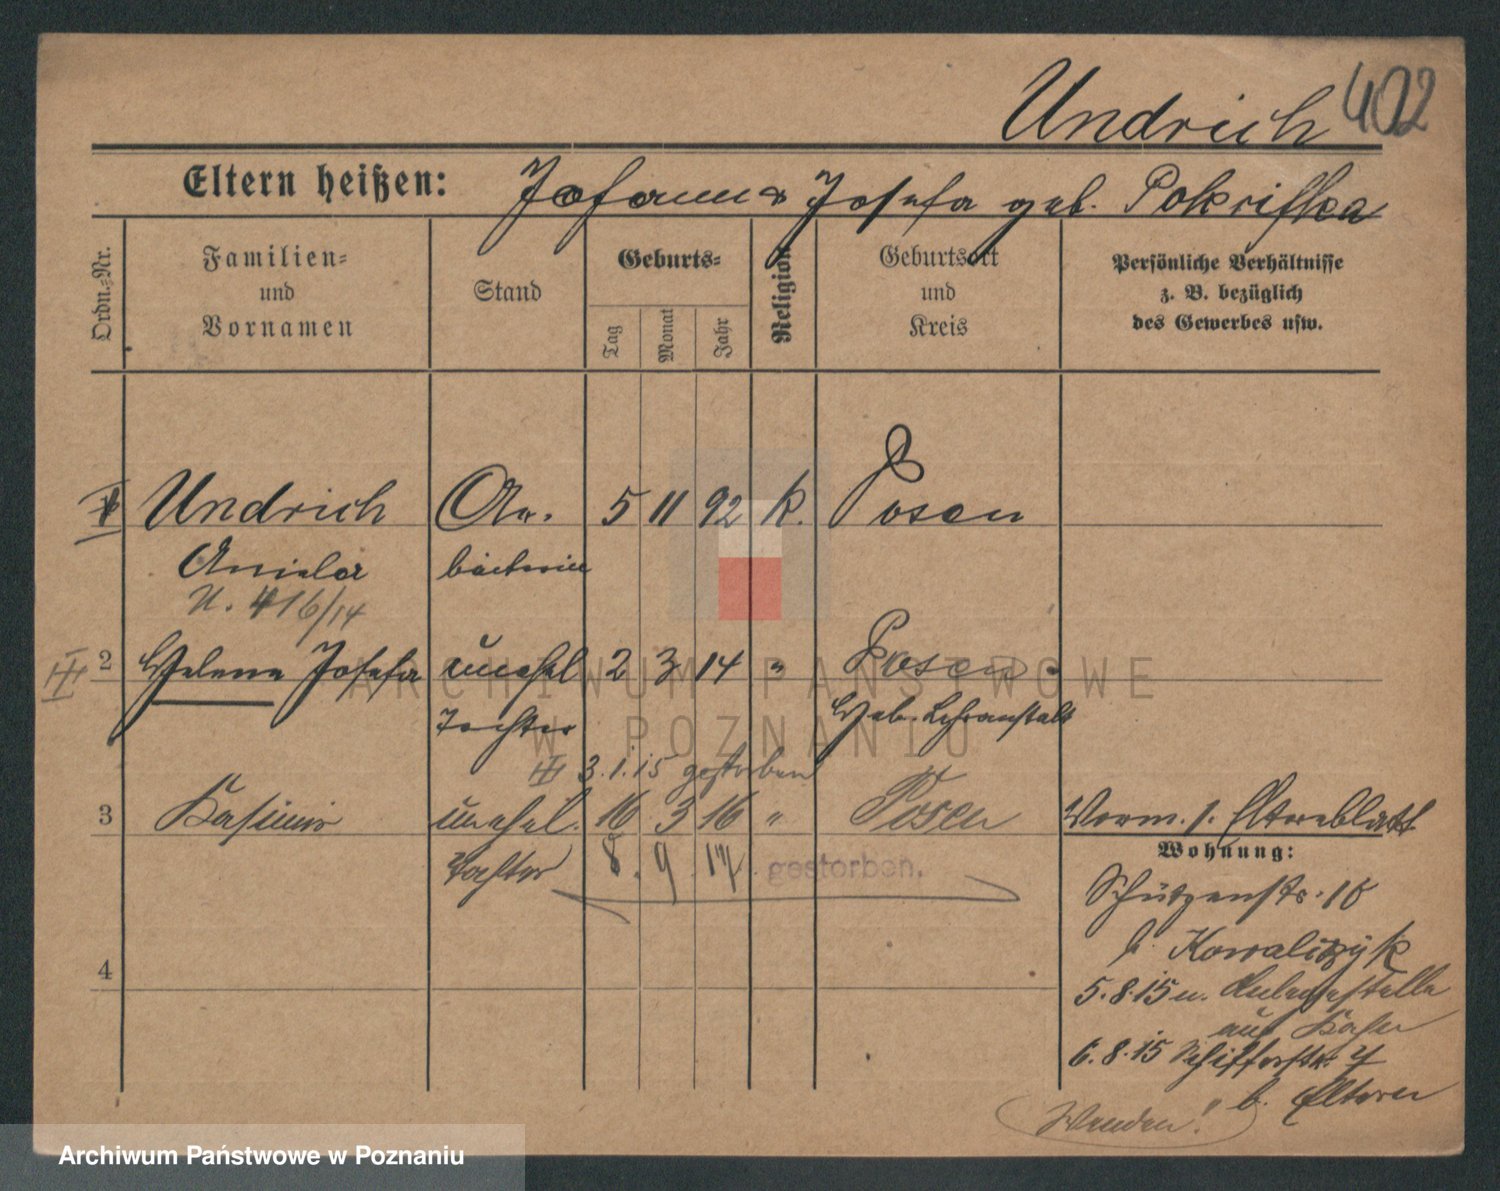 Undrich 402
Eltern heißen: Johann & Josefa geb. Pokrifka
Ordn.-Nr.
Familien-
und
Vornamen
Stand
Geburts-
Tag
Monat
Jahr
Religion
Geburtsort
und
Kreis
Persönliche Verhältnisse
z. B. bezüglich
des Gewerbes usw.
1 Undrich Ar. 5 11 92 k. Posen
Aniela beiterin
U. 416/14
2 Helene Josefa unehel 2 3 14 " Posen
Tochter Heb. Lehranstalt
3.1.15 gestorben
3 Kasimir unehel. 16 3 16 " Posen
Tochter 8. 9 17 gestorben.
4
Verm. s. Elternblatt
Wohnung:
Schützenstr. 16
b. Kowalczyk
5.8.15 u.
6.8.15 Schifferstr. 4
b. Eltern
Wenden!
ARCHIWUM PAŃSTWOWE
W POZNANIU
Archiwum Państwowe w Poznaniu